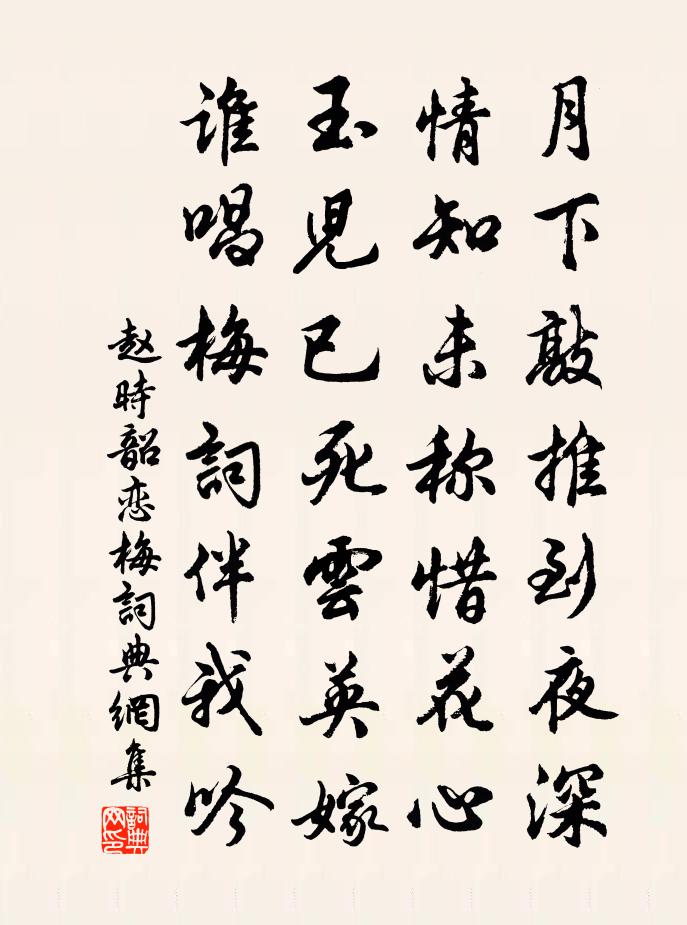 月下敲推到夜深
情知未称惜花心
玉児已死雲英嫁
谁唱梅詞伴我吟
赵時韶恋梅詞典網集
詞典网印